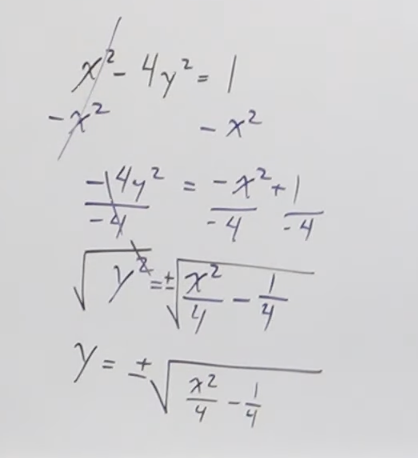 x² - 4y² = 1
-x² - x²
-4y² = -x² + 1
-4 -4 -4
√y² = ±√(x²/4 - 1/4)
y = ±√(x²/4 - 1/4)